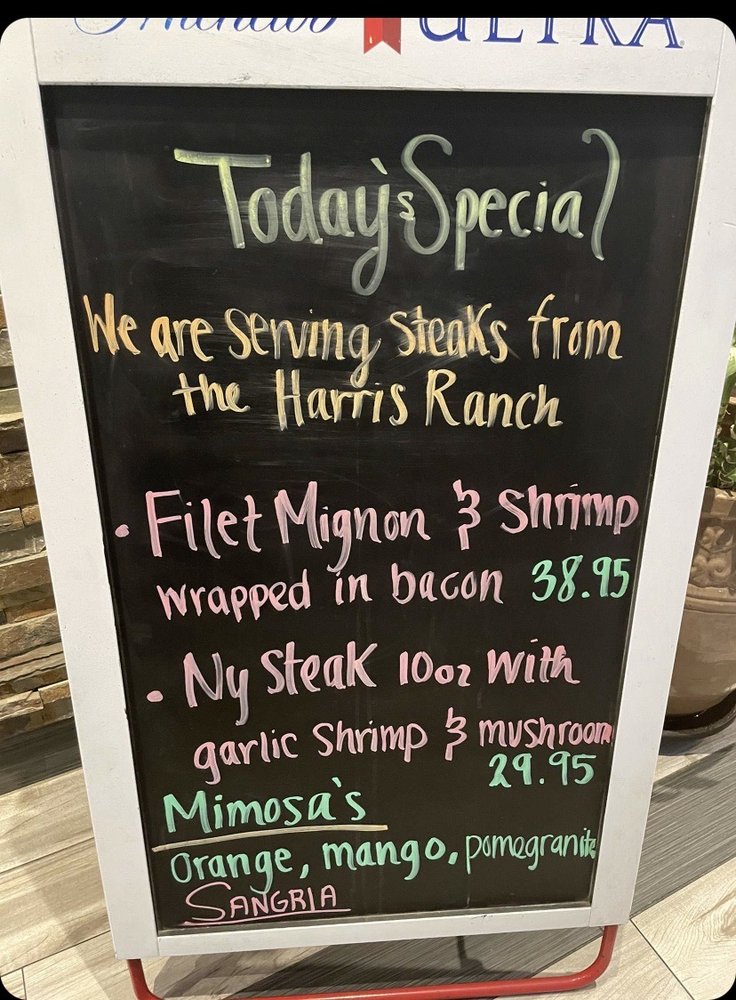 Michelob ULTRA
Today's Special
We are serving steaks from
the Harris Ranch
• Filet Mignon & Shrimp
wrapped in bacon 38.95
• Ny Steak 10oz with
garlic Shrimp & mushroom
29.95
Mimosa's
Orange, mango, pomegranite
SANGRIA